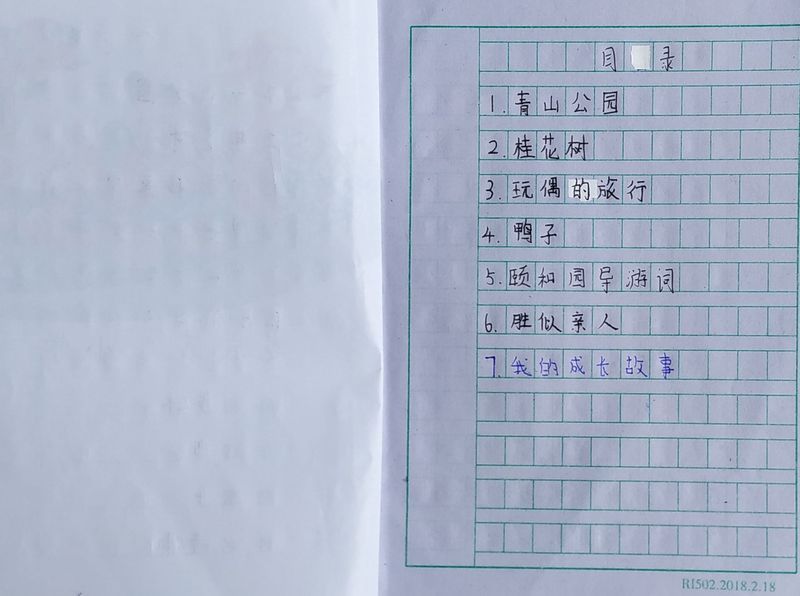 目录
1.青山公园
2.桂花树
3.玩偶的旅行
4.鸭子
5.颐和园导游词
6.胜似亲人
7.我的成长故事
RI502.2018.2.18